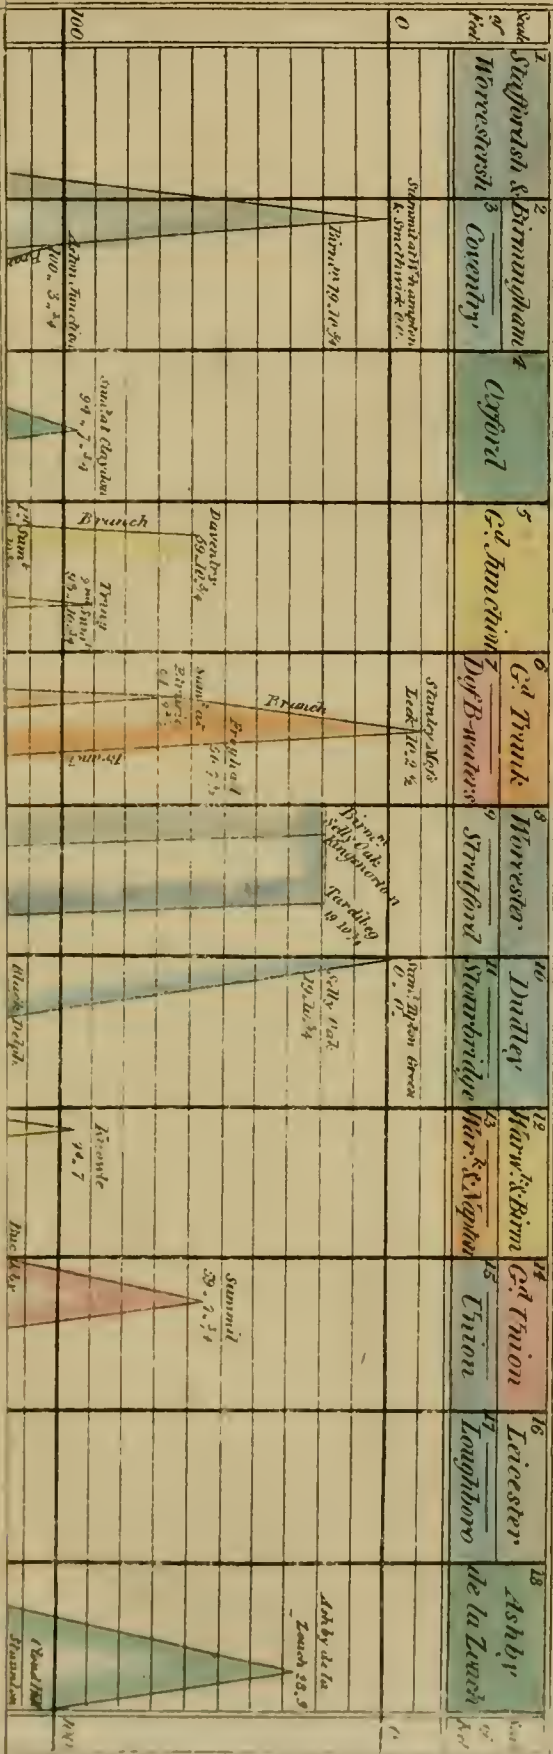 Scale
of
Feet
0
100
1
Staffordsh &
Worcestersh
2
Birmingham
3
Coventry
4
Oxford
5
Gd. Junction
6
Gd. Trunk
7
D. of B-waters
8
Worcester
9
Stratford
10
Dudley
11
Stourbridge
12
Warwk. & Birm
13
Wark. & Napton
14
Gd. Union
15
Union
16
Leicester
17
Loughboro
18
Ashby
de la Zouch
Summit at W.hampton
& Smethwick 0.0.
Birmm. 19.10 3/4
Aston Junction
100.3.3/4
Sum. at Claydon
94.7.3/4
Daventry
59.10.3/4
Branch
Tring
2nd Sumt.
94.10.3/4
1st Sumt.
Stanley Moss
Leek 10.2 1/2
Branch
Sum. at
Branch
Birmm.
Selly Oak
Kingsnorton
Tardibeg
19 10 3/4
Sumt. Tipton Green
0.0.
Selly Oak
19.10.3/4
Black Delph
Knowle
94.7
Summit
59.2.3/4
Ashby de la
Zouch 28.9
Cloud Hill
Staunton